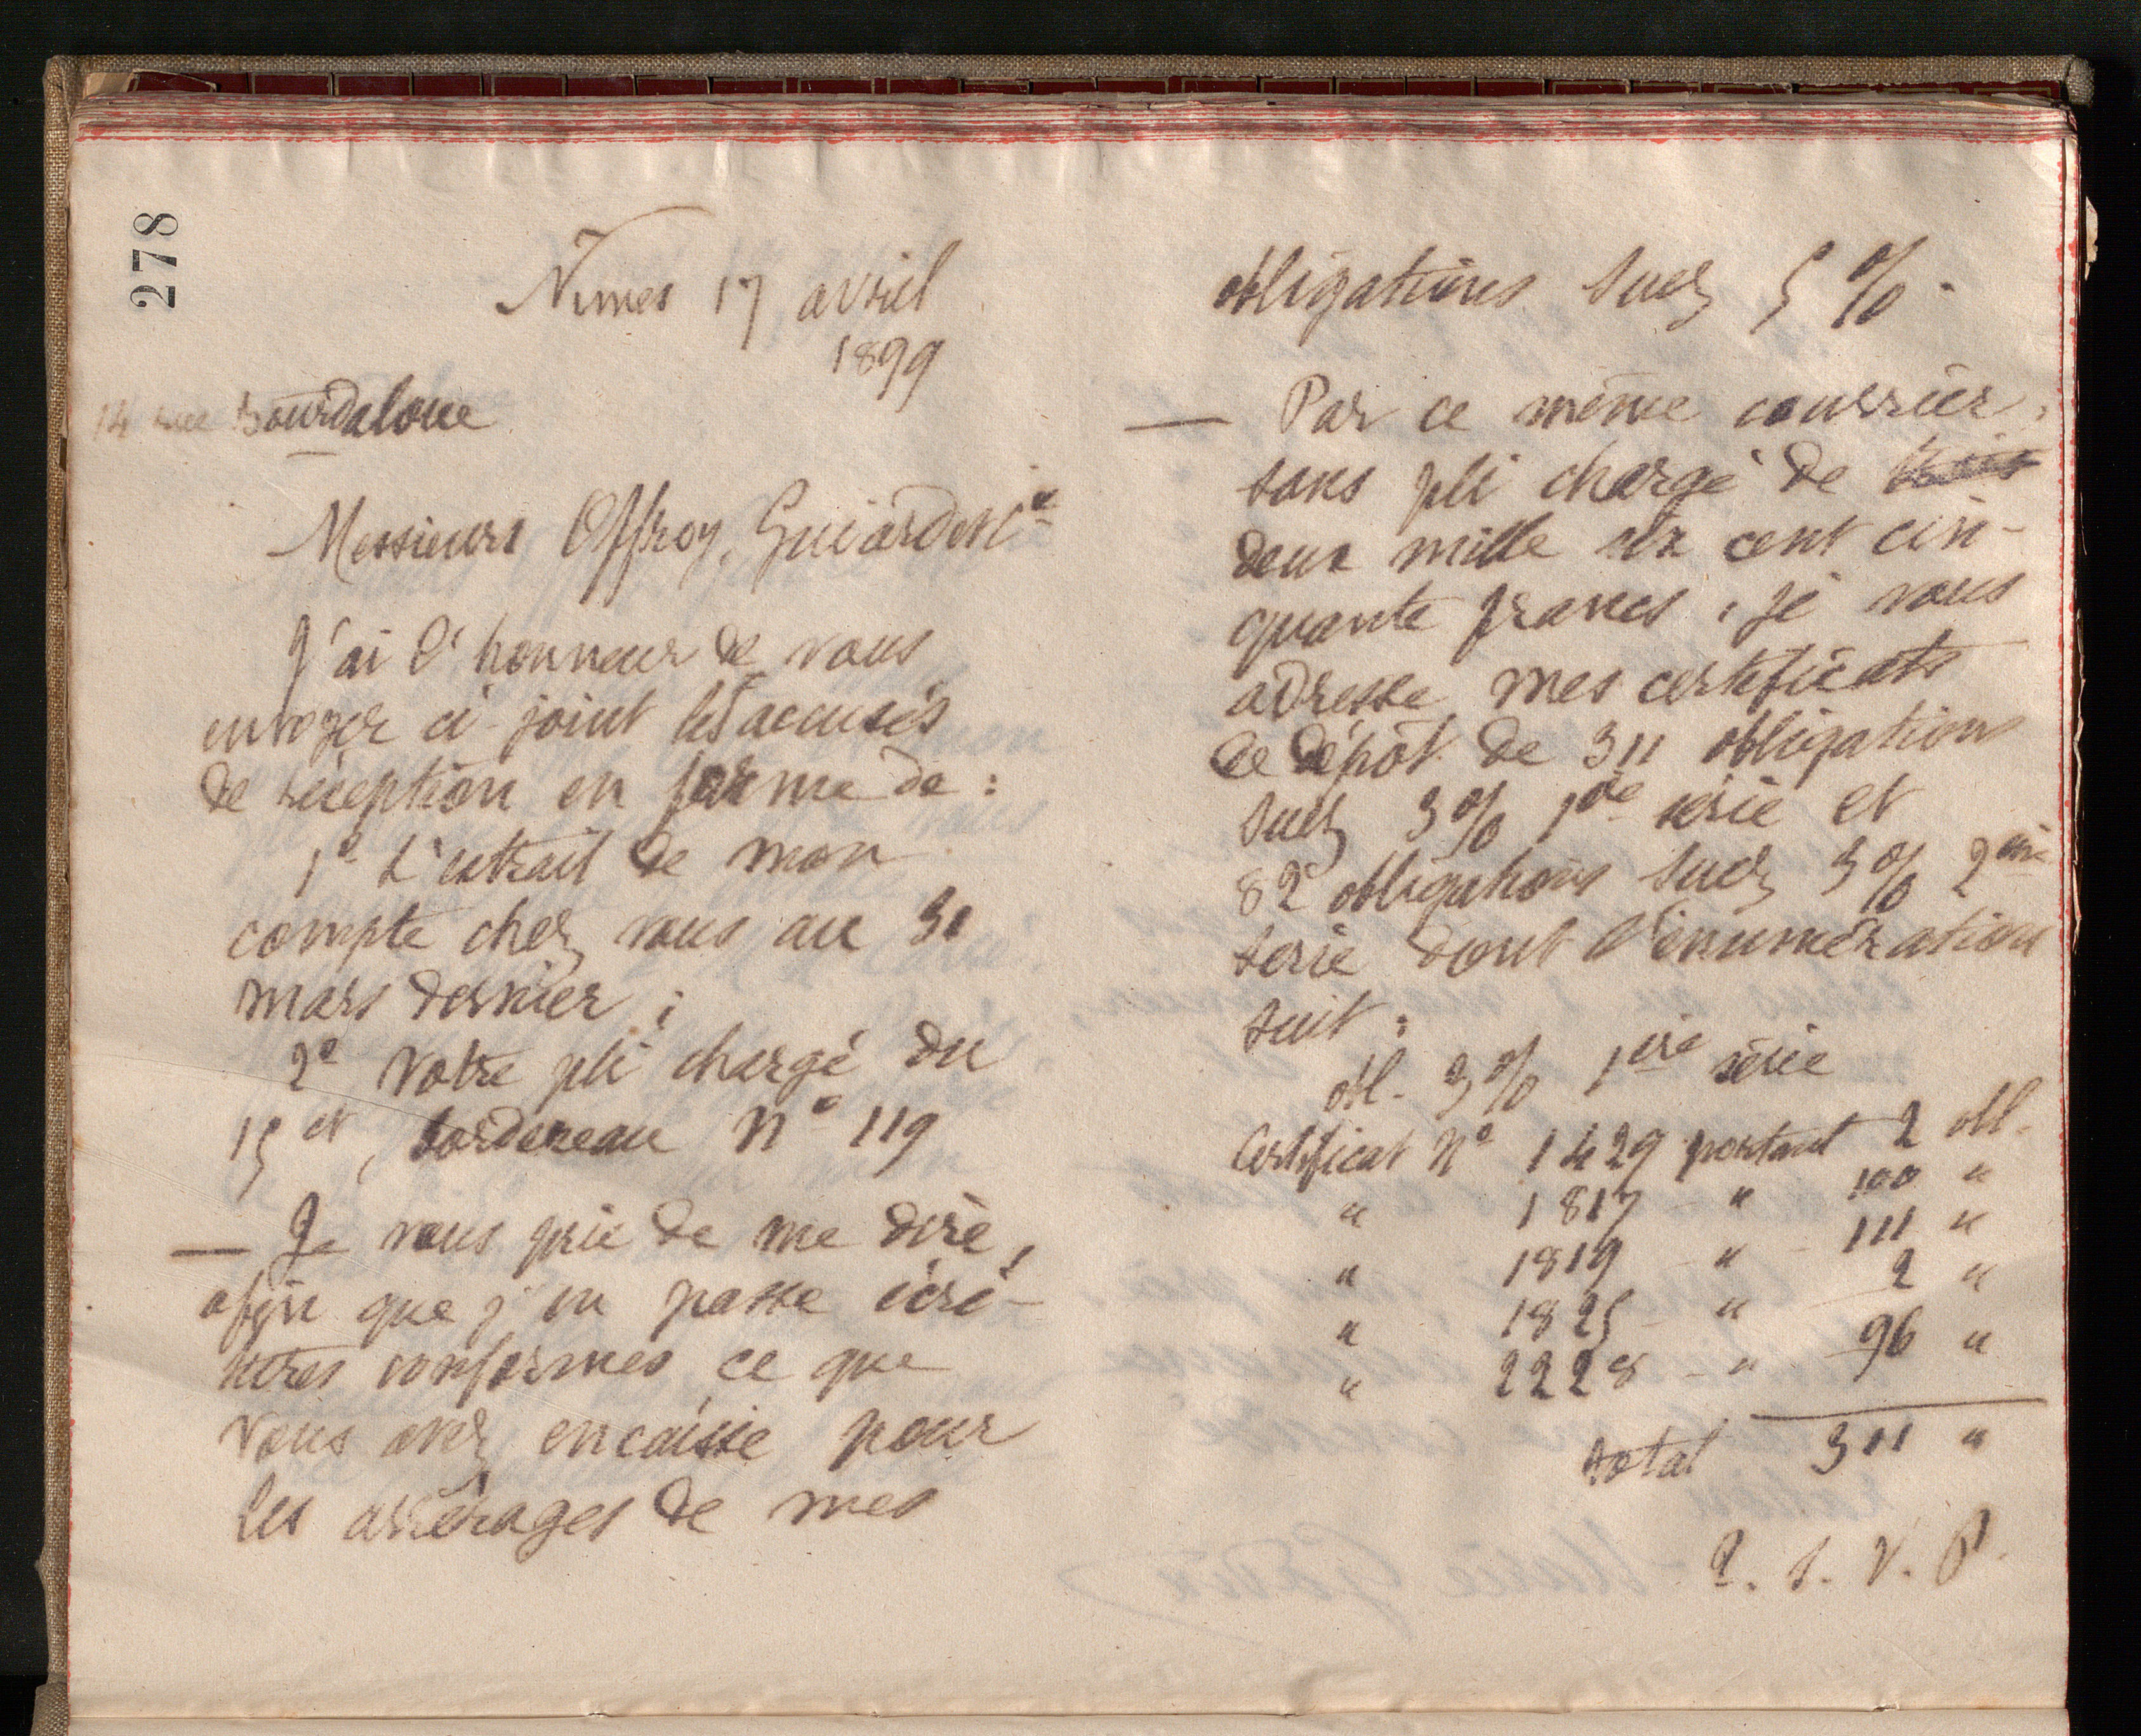 278
Nimes 17 avril
1899
14 rue Bourdaloue
Messieurs Offroy, Guiard et Cie
J'ai l'honneur de vous
envoyer ci-joint les accusés
de réception en forme de :
1° L'extrait de mon
compte chez vous au 31
mars dernier ;
2° Votre pli chargé du
15 ct, bordereau N° 119
— Je vous prie de me dire,
afin que j'en passe écri-
tures conformes ce que
vous avez encaissé pour
les arrérages de mes
obligations Suez 5 %.
— Par ce même courrier,
sous pli chargé de trois
deux mille six cent cin-
quante francs, je vous
adresse mes certificats
de dépôt de 311 obligations
Suez 3% 1ère série et
82 obligations Suez 3% 2ème
série dont l'énumération
suit :
obl. 3% 1ère série
Certificat N° 1429 portant 2 obl.
" 1817 - " 100 "
" 1819 - " - 111 "
" 1825 - " - 2 "
" 2228 - " - 96 "
total 311 "
T. S. V. P.